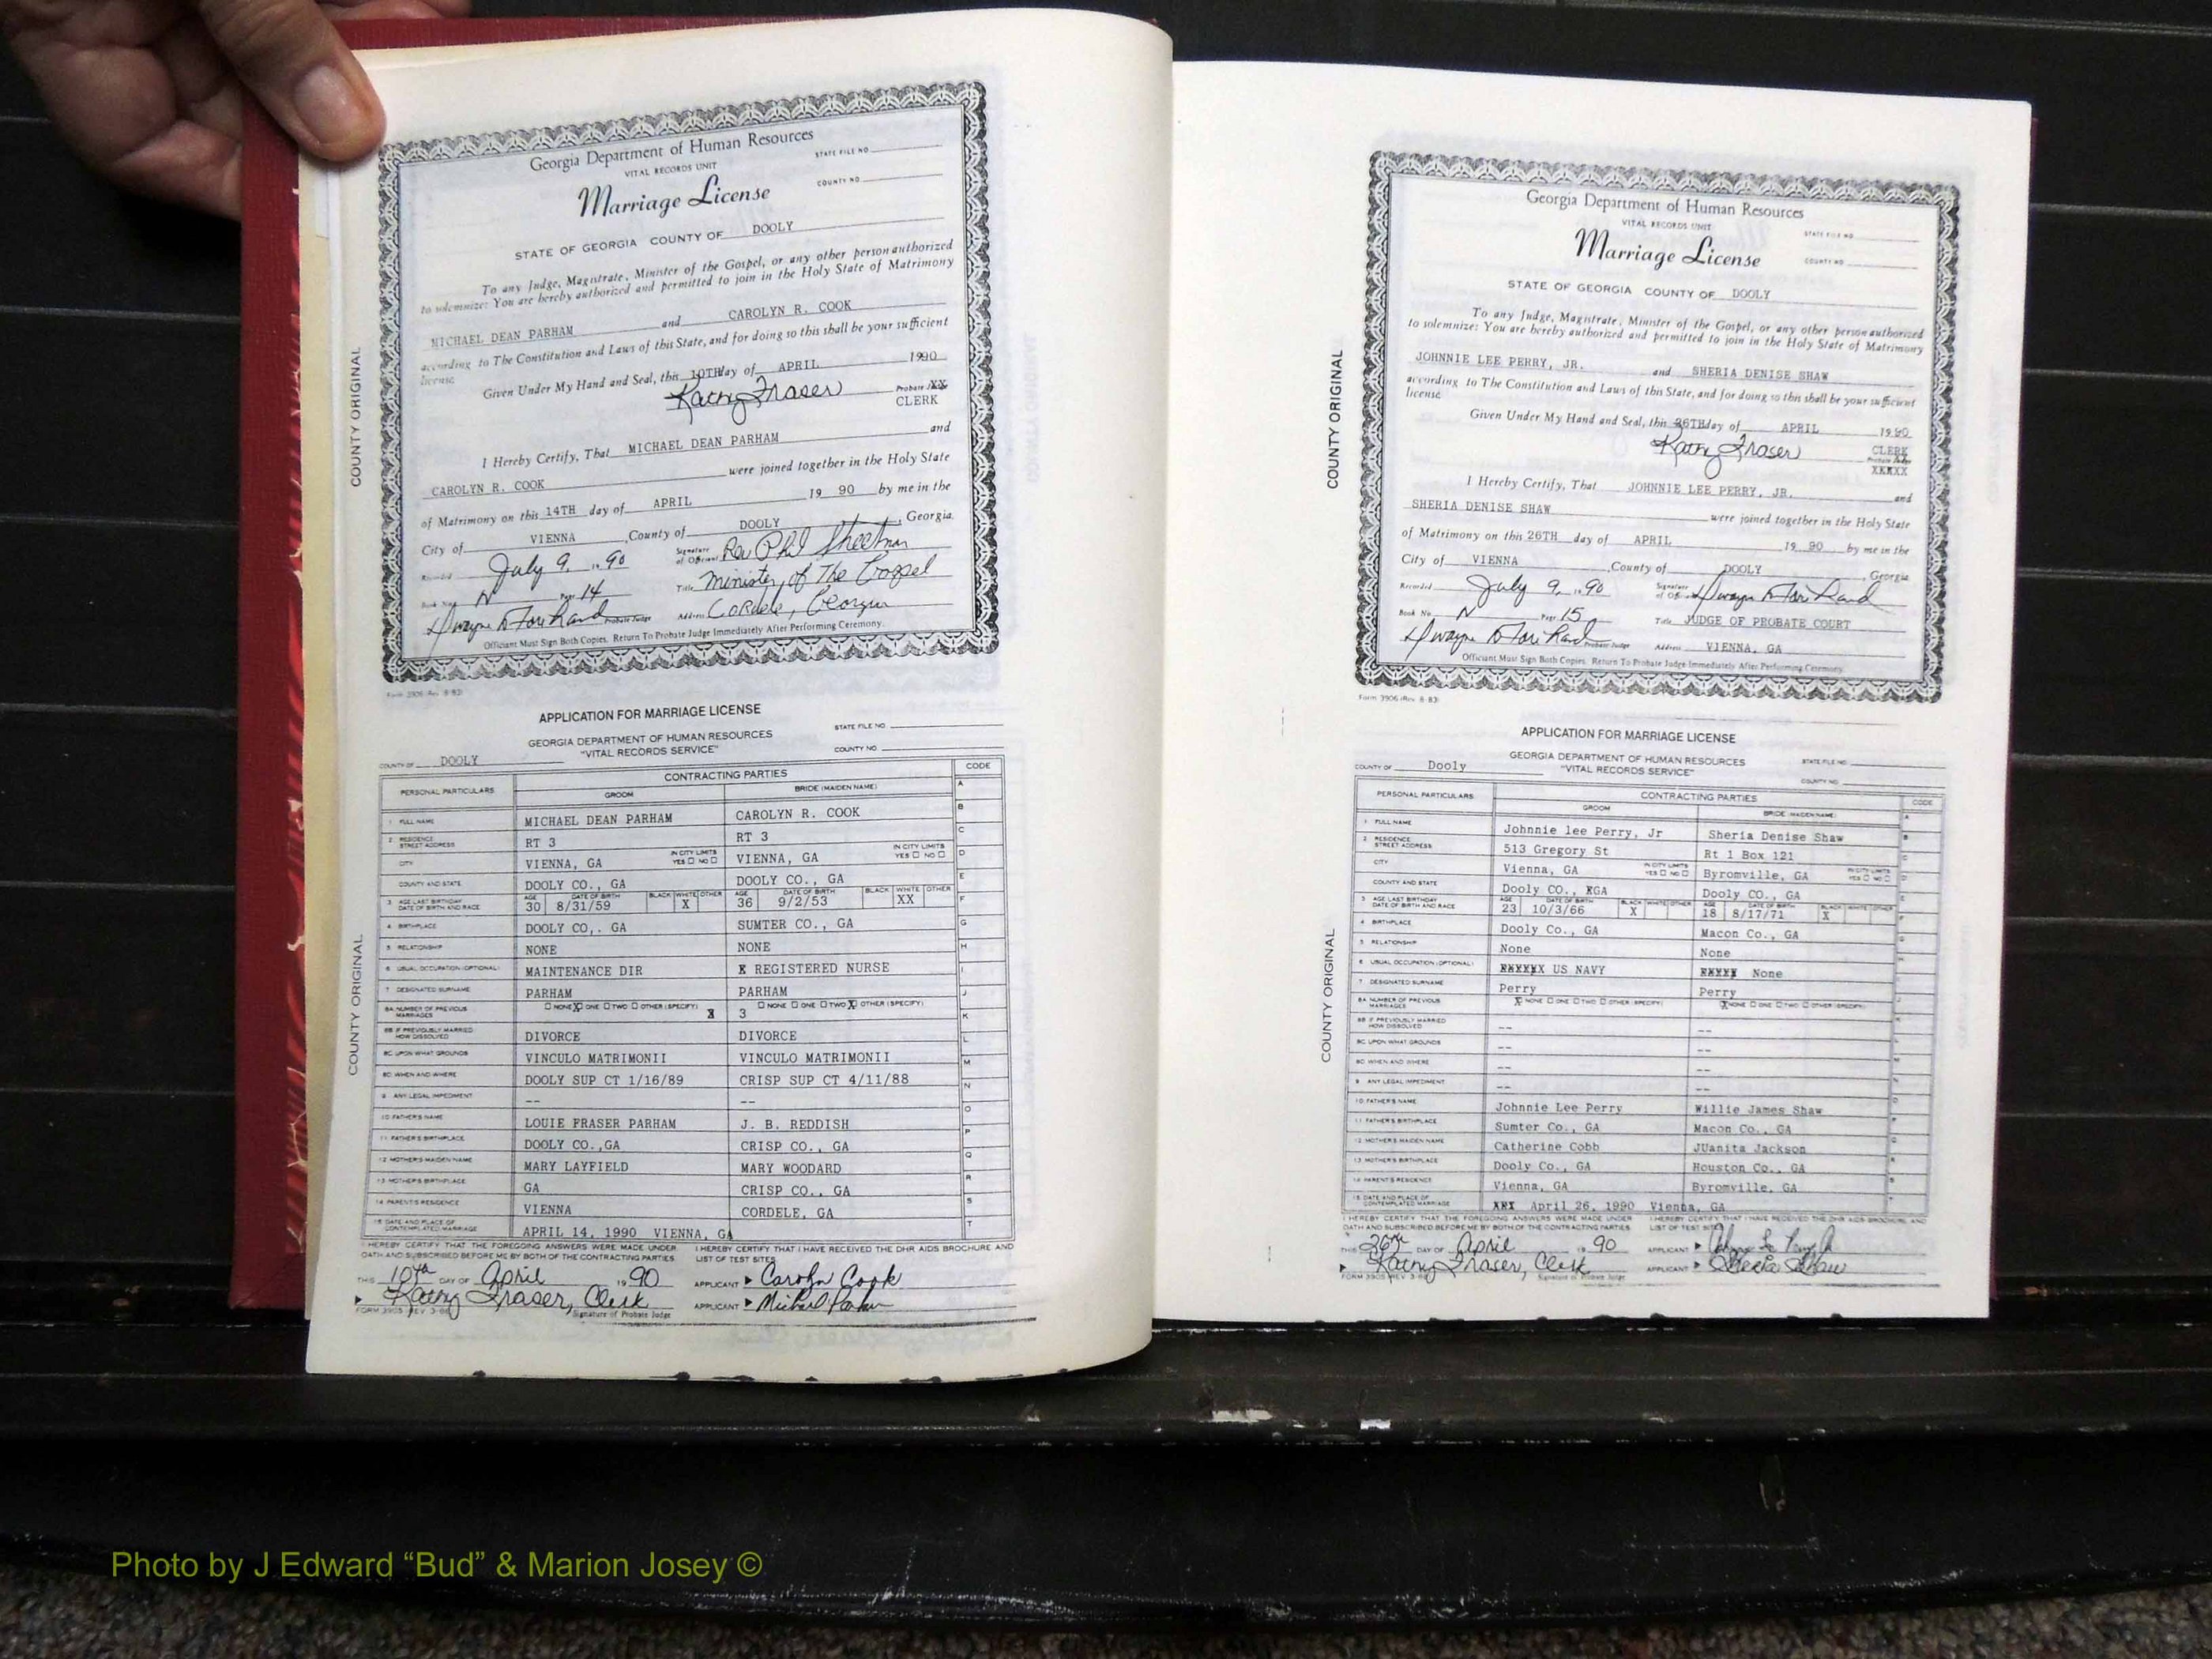 COUNTY ORIGINAL
Georgia Department of Human Resources
VITAL RECORDS UNIT
STATE FILE NO.
Marriage License
COUNTY NO.
STATE OF GEORGIA COUNTY OF DOOLY
To any Judge, Magistrate, Minister of the Gospel, or any other person authorized
to solemnize: You are hereby authorized and permitted to join in the Holy State of Matrimony
MICHAEL DEAN PARHAM and CAROLYN R. COOK
according to The Constitution and Laws of this State, and for doing so this shall be your sufficient
license
Given Under My Hand and Seal, this 10TH day of APRIL 1990
Kathy Fraser Probate XX
CLERK
I Hereby Certify, That MICHAEL DEAN PARHAM and
CAROLYN R. COOK were joined together in the Holy State
of Matrimony on this 14TH day of APRIL 19 90 by me in the
City of VIENNA, County of DOOLY, Georgia.
Recorded July 9, 90 Signature of Official Rev Phil
Book No. N Page 14 Title Minister of The Gospel
Probate Judge Address Cordele, Georgia
Officiant Must Sign Both Copies. Return To Probate Judge Immediately After Performing Ceremony.
Form 3906 (Rev. 8-83)
COUNTY ORIGINAL
APPLICATION FOR MARRIAGE LICENSE
STATE FILE NO.
GEORGIA DEPARTMENT OF HUMAN RESOURCES
"VITAL RECORDS SERVICE"
COUNTY NO.
COUNTY OF DOOLY
PERSONAL PARTICULARS CONTRACTING PARTIES CODE
GROOM BRIDE (MAIDEN NAME)
1 FULL NAME MICHAEL DEAN PARHAM CAROLYN R. COOK
2 RESIDENCE STREET ADDRESS RT 3 RT 3
CITY VIENNA, GA IN CITY LIMITS YES NO VIENNA, GA IN CITY LIMITS YES NO
COUNTY AND STATE DOOLY CO., GA DOOLY CO., GA
3 AGE LAST BIRTHDAY DATE OF BIRTH AND RACE AGE 30 DATE OF BIRTH 8/31/59 BLACK WHITE X OTHER AGE 36 DATE OF BIRTH 9/2/53 BLACK WHITE XX OTHER
4 BIRTHPLACE DOOLY CO,. GA SUMTER CO., GA
5 RELATIONSHIP NONE NONE
6 USUAL OCCUPATION (OPTIONAL) MAINTENANCE DIR X REGISTERED NURSE
7 DESIGNATED SURNAME PARHAM PARHAM
8A NUMBER OF PREVIOUS MARRIAGES NONE X ONE TWO OTHER (SPECIFY) X NONE ONE TWO X OTHER (SPECIFY) 3
8B IF PREVIOUSLY MARRIED HOW DISSOLVED DIVORCE DIVORCE
8C UPON WHAT GROUNDS VINCULO MATRIMONII VINCULO MATRIMONII
8D WHEN AND WHERE DOOLY SUP CT 1/16/89 CRISP SUP CT 4/11/88
9 ANY LEGAL IMPEDIMENT -- --
10 FATHER'S NAME LOUIE FRASER PARHAM J. B. REDDISH
11 FATHER'S BIRTHPLACE DOOLY CO.,GA CRISP CO., GA
12 MOTHER'S MAIDEN NAME MARY LAYFIELD MARY WOODARD
13 MOTHER'S BIRTHPLACE GA CRISP CO., GA
14 PARENT'S RESIDENCE VIENNA CORDELE, GA
15 DATE AND PLACE OF CONTEMPLATED MARRIAGE APRIL 14, 1990 VIENNA, GA
A B C D E F G H I J K L M N O P Q R S T
I HEREBY CERTIFY THAT THE FOREGOING ANSWERS WERE MADE UNDER
OATH AND SUBSCRIBED BEFORE ME BY BOTH OF THE CONTRACTING PARTIES
I HEREBY CERTIFY THAT I HAVE RECEIVED THE DHR AIDS BROCHURE AND
LIST OF TEST SITES
THIS 10th DAY OF April 19 90 APPLICANT Carolyn Cook
Kathy Fraser, Clerk APPLICANT Michael Parham
FORM 3905 (REV. 3-88) Signature of Probate Judge
COUNTY ORIGINAL
Georgia Department of Human Resources
VITAL RECORDS UNIT
STATE FILE NO.
Marriage License
COUNTY NO.
STATE OF GEORGIA COUNTY OF DOOLY
To any Judge, Magistrate, Minister of the Gospel, or any other person authorized
to solemnize: You are hereby authorized and permitted to join in the Holy State of Matrimony
JOHNNIE LEE PERRY, JR. and SHERIA DENISE SHAW
according to The Constitution and Laws of this State, and for doing so this shall be your sufficient
license
Given Under My Hand and Seal, this 26TH day of APRIL 1990
Kathy Fraser CLERK
Probate Judge
XXXXX
I Hereby Certify, That JOHNNIE LEE PERRY, JR. and
SHERIA DENISE SHAW were joined together in the Holy State
of Matrimony on this 26TH day of APRIL 19 90 by me in the
City of VIENNA, County of DOOLY, Georgia
Recorded July 9, 90 Signature of Off
Book No. N Page 15 Title JUDGE OF PROBATE COURT
Probate Judge Address VIENNA, GA
Officiant Must Sign Both Copies. Return To Probate Judge Immediately After Performing Ceremony.
Form 3906 (Rev. 8-83)
COUNTY ORIGINAL
APPLICATION FOR MARRIAGE LICENSE
GEORGIA DEPARTMENT OF HUMAN RESOURCES STATE FILE NO.
"VITAL RECORDS SERVICE"
COUNTY OF Dooly COUNTY NO.
PERSONAL PARTICULARS CONTRACTING PARTIES CODE
GROOM BRIDE (MAIDEN NAME)
1 FULL NAME Johnnie lee Perry, Jr Sheria Denise Shaw
2 RESIDENCE STREET ADDRESS 513 Gregory St Rt 1 Box 121
CITY Vienna, GA IN CITY LIMITS YES NO Byromville, GA IN CITY LIMITS YES NO
COUNTY AND STATE Dooly CO., XGA Dooly CO., GA
3 AGE LAST BIRTHDAY DATE OF BIRTH AND RACE AGE 23 DATE OF BIRTH 10/3/66 BLACK X WHITE OTHER AGE 18 DATE OF BIRTH 8/17/71 BLACK X WHITE OTHER
4 BIRTHPLACE Dooly Co., GA Macon Co., GA
5 RELATIONSHIP None None
6 USUAL OCCUPATION (OPTIONAL) XXXXXX US NAVY XXXXX None
7 DESIGNATED SURNAME Perry Perry
8A NUMBER OF PREVIOUS MARRIAGES X NONE ONE TWO OTHER (SPECIFY) X NONE ONE TWO OTHER (SPECIFY)
8B IF PREVIOUSLY MARRIED HOW DISSOLVED -- --
8C UPON WHAT GROUNDS -- --
8D WHEN AND WHERE -- --
9 ANY LEGAL IMPEDIMENT -- --
10 FATHER'S NAME Johnnie Lee Perry Willie James Shaw
11 FATHER'S BIRTHPLACE Sumter Co., GA Macon Co., GA
12 MOTHER'S MAIDEN NAME Catherine Cobb JUanita Jackson
13 MOTHER'S BIRTHPLACE Dooly Co., GA Houston Co., GA
14 PARENT'S RESIDENCE Vienna, GA Byromville, GA
15 DATE AND PLACE OF CONTEMPLATED MARRIAGE XXX April 26, 1990 Vienna, GA
I HEREBY CERTIFY THAT THE FOREGOING ANSWERS WERE MADE UNDER
OATH AND SUBSCRIBED BEFORE ME BY BOTH OF THE CONTRACTING PARTIES
I HEREBY CERTIFY THAT I HAVE RECEIVED THE DHR AIDS BROCHURE AND
LIST OF TEST SITES
THIS 26th DAY OF April 19 90 APPLICANT
Kathy Fraser, Clerk APPLICANT Sheria Shaw
FORM 3905 (REV. 3-88) Signature of Probate Judge
Photo by J Edward “Bud” & Marion Josey ©